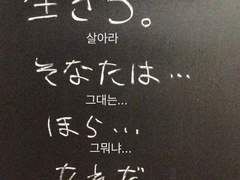 生きろ。
살아라
そなたは…
그대는...
ほら…
그뭐냐...